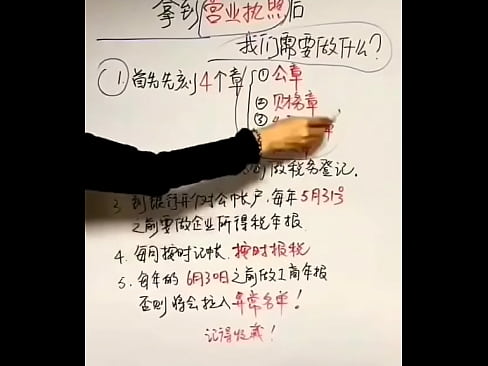 拿到营业执照后
我们需要做什么?
1. 首先先刻4个章
① 公章
② 财务章
③
做税务登记.
3. 到银行开对公帐户,每年5月31日
之前要做企业所得税年报
4. 每月按时记帐,按时报税
5. 每年的6月30日之前做工商年报
否则将会拉入异常名单!
记得收藏!